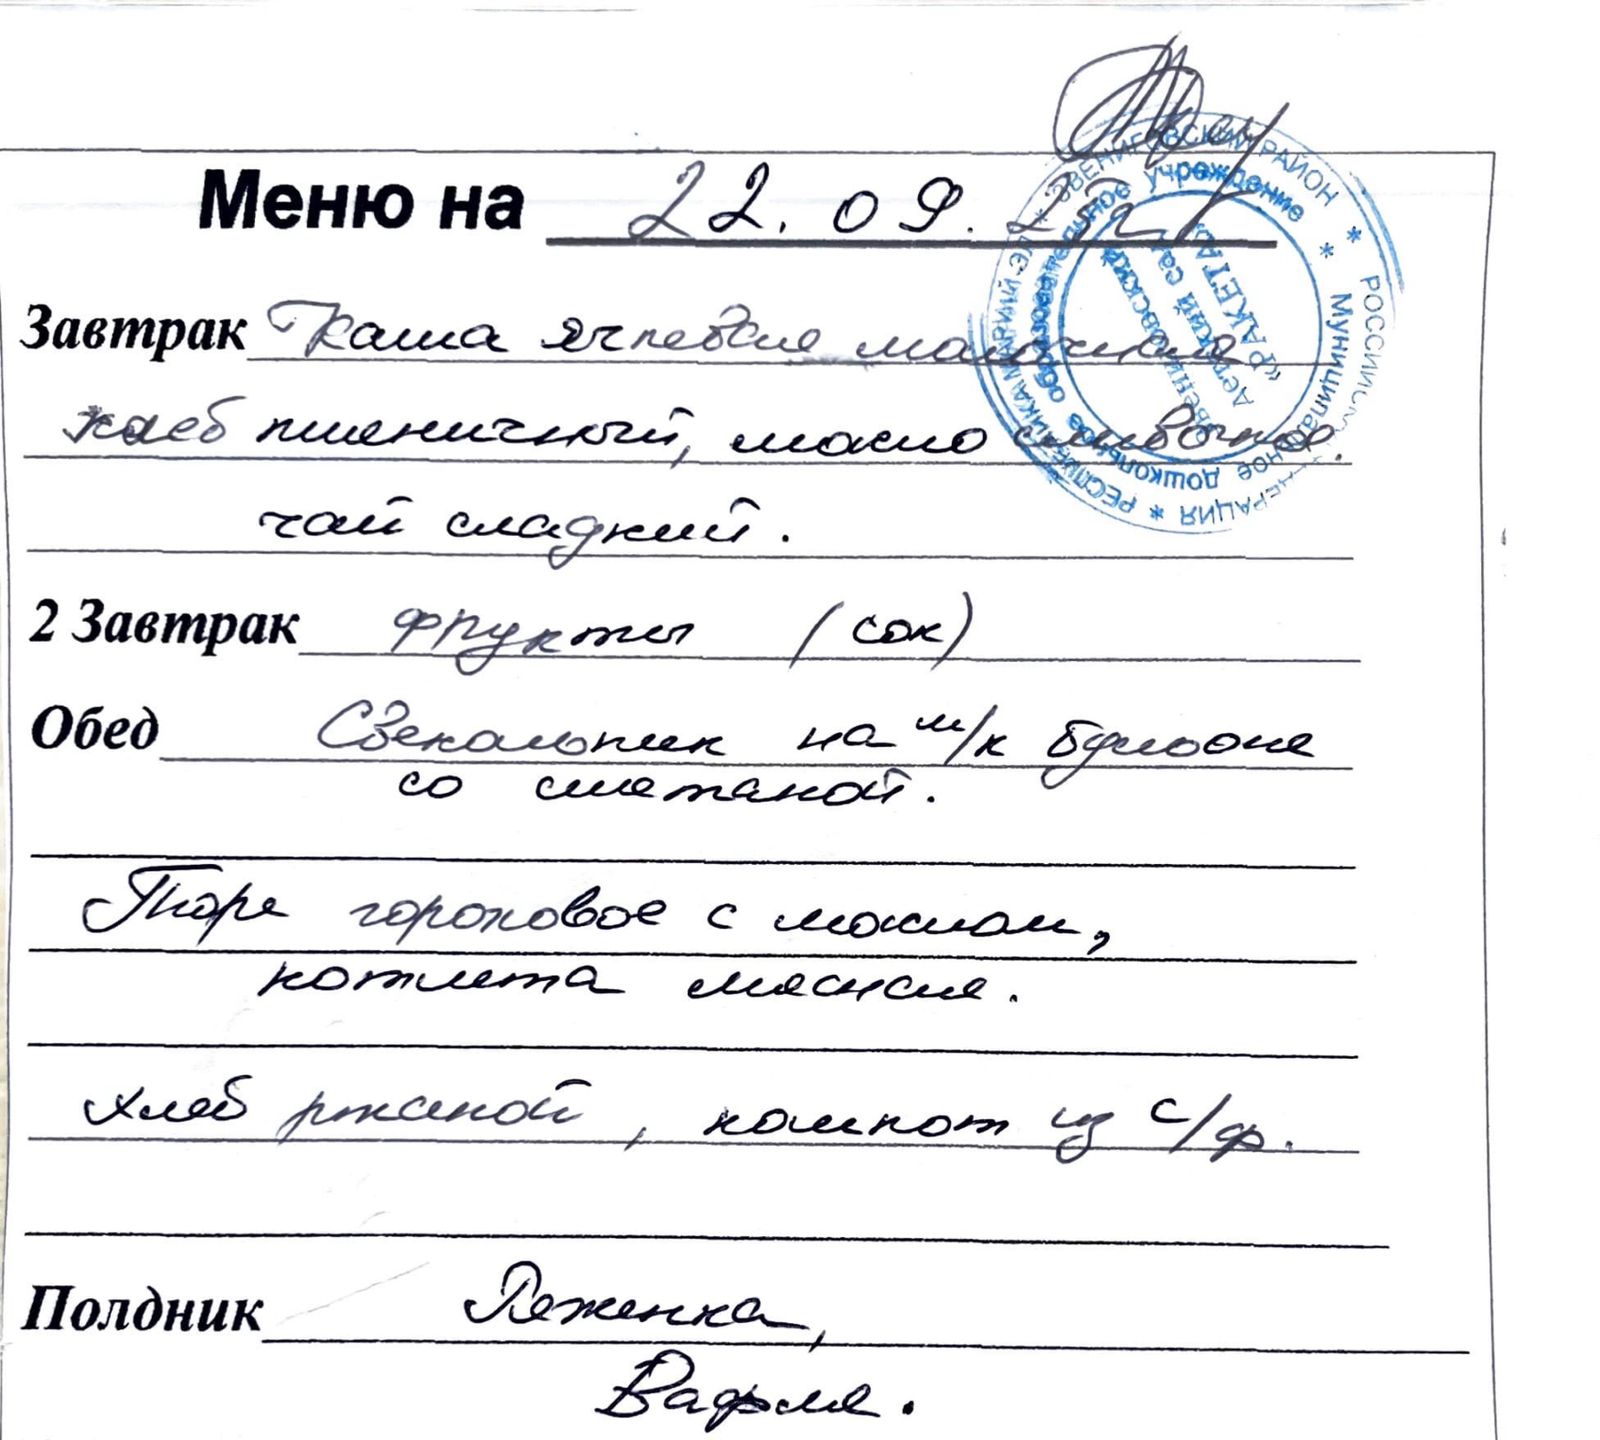 Меню на 22.09.23г
Завтрак Каша ячневая молочная
хлеб пшеничный, масло сливочное.
чай сладкий.
2 Завтрак фрукты (сок)
Обед Свекольник на м/к бульоне
со сметаной.
Пюре гороховое с маслом,
котлета мясная.
хлеб ржаной, компот из с/ф.
Полдник Ряженка,
Вафля.
РОССИЙСКАЯ ФЕДЕРАЦИЯ * РЕСПУБЛИКА МАРИЙ ЭЛ * ЗВЕНИГОВСКИЙ РАЙОН *
Муниципальное дошкольное образовательное учреждение *
Звениговский
детский сад
«РАКЕТА»